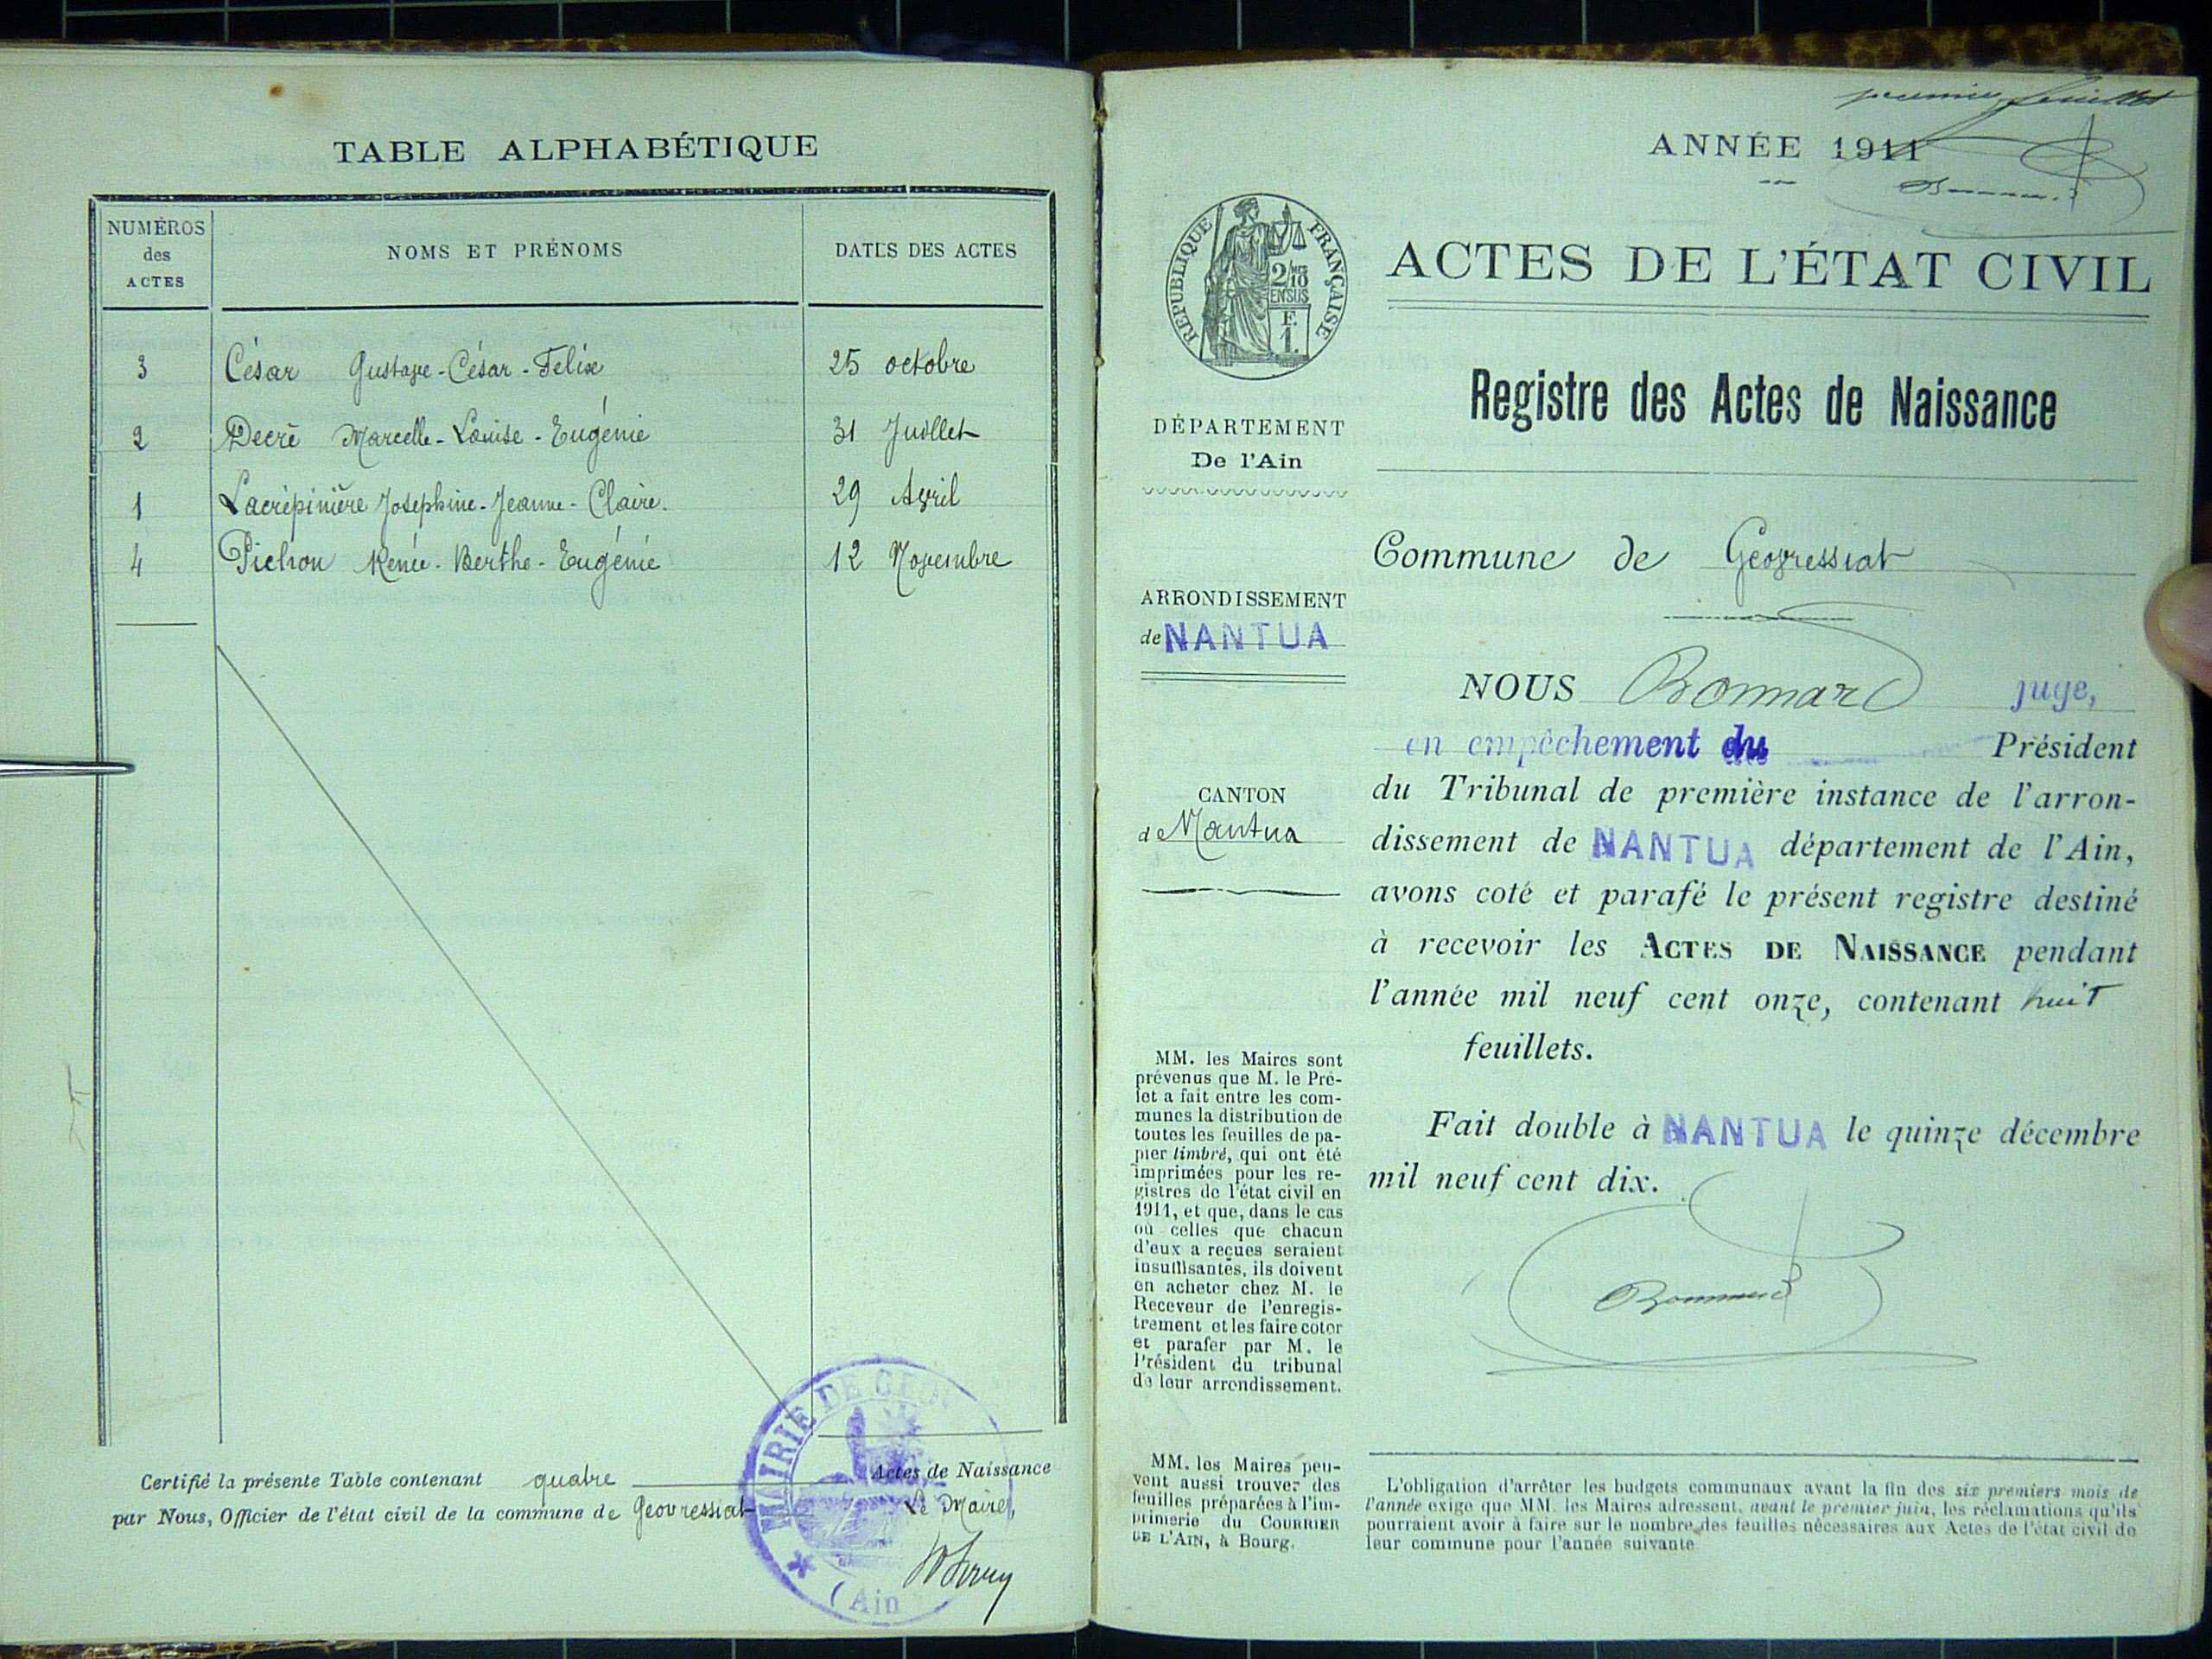 TABLE ALPHABÉTIQUE
NUMÉROS
des
ACTES
NOMS ET PRÉNOMS
DATES DES ACTES
3 César Gustave-César-Félix 25 octobre
2 Decré Marcelle-Louise-Eugénie 31 Juillet
1 Lacrépinière Joséphine-Jeanne-Claire. 29 Avril
4 Pichon Renée-Berthe-Eugénie 12 Novembre
Certifié la présente Table contenant quatre Actes de Naissance
par Nous, Officier de l'état civil de la commune de Geovressiat
Le Maire,
MAIRIE DE GEOV
(Ain
premier feuillet
ANNÉE 1911
Bonnard
RÉPUBLIQUE FRANÇAISE
2/10
EN SUS
F.
1.
ACTES DE L'ÉTAT CIVIL
Registre des Actes de Naissance
DÉPARTEMENT
De l'Ain
ARRONDISSEMENT
de NANTUA
CANTON
de Nantua
Commune de Geovressiat
NOUS Bonnard juge,
en empêchement du Président
du Tribunal de première instance de l'arron-
dissement de NANTUA département de l'Ain,
avons coté et parafé le présent registre destiné
à recevoir les ACTES DE NAISSANCE pendant
l'année mil neuf cent onze, contenant huit
feuillets.
Fait double à NANTUA le quinze décembre
mil neuf cent dix.
Bonnard
MM. les Maires sont
prévenus que M. le Pré-
fet a fait entre les com-
munes la distribution de
toutes les feuilles de pa-
pier timbré, qui ont été
imprimées pour les re-
gistres de l'état civil en
1911, et que, dans le cas
où celles que chacun
d'eux a reçues seraient
insuffisantes, ils doivent
en acheter chez M. le
Receveur de l'enregis-
trement et les faire coter
et parafer par M. le
Président du tribunal
de leur arrondissement.
MM. les Maires peu-
vent aussi trouver des
feuilles préparées à l'im-
primerie du COURRIER
DE L'AIN, à Bourg.
L'obligation d'arrêter les budgets communaux avant la fin des six premiers mois de
l'année exige que MM. les Maires adressent, avant le premier juin, les réclamations qu'ils
pourraient avoir à faire sur le nombre des feuilles nécessaires aux Actes de l'état civil de
leur commune pour l'année suivante